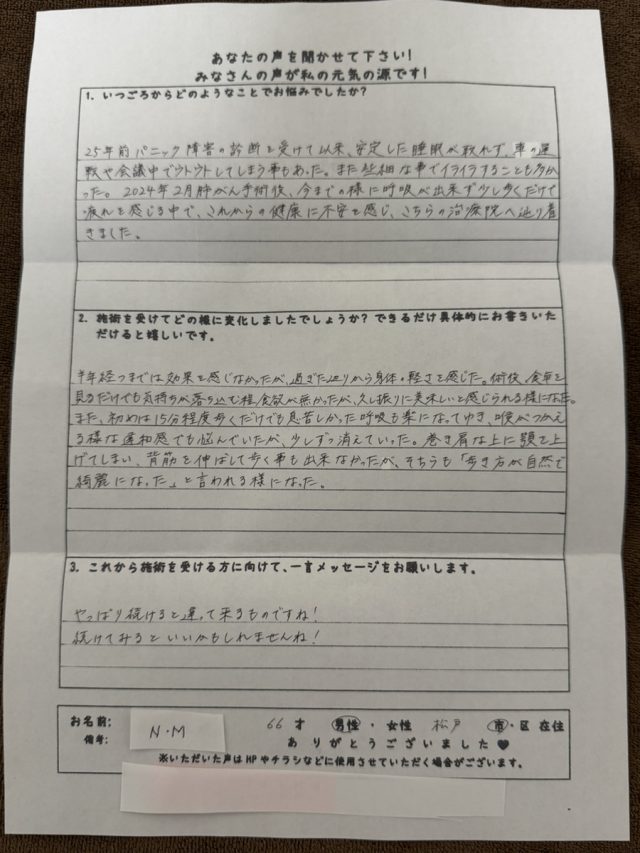 あなたの声を聞かせて下さい!
みなさんの声が私の元気の源です!
1. いつごろからどのようなことでお悩みでしたか?
25年前パニック障害の診断を受けて以来、安定した睡眠が取れず、車の運
転や会議中でウトウトしてしまう事もあった。また些細な事でイライラすることも多か
った。2024年2月肺がん手術後、今までの様に呼吸が出来ず少し歩くだけで
疲れを感じる中で、これからの健康に不安を感じ、こちらの治療院へ辿り着
きました。
2. 施術を受けてどの様に変化しましたでしょうか? できるだけ具体的にお書きいた
だけると嬉しいです。
半年経つまでは効果を感じなかったが、過ぎた辺りから身体の軽さを感じた。術後、食卓を
見るだけでも気持ちが落ち込む程食欲が無かったが、久し振りに美味しいと感じられる様になった。
また、初めは15分程度歩くだけでも息苦しかった呼吸も楽になってゆき、喉がつかえ
る様な違和感でも悩んでいたが、少しずつ消えていった。巻き肩な上に顎を上
げてしまい、背筋を伸ばして歩く事も出来なかったが、そちらも「歩き方が自然で
綺麗になった」と言われる様になった。
3. これから施術を受ける方に向けて、一言メッセージをお願いします。
やっぱり続けると違って来るものですね!
続けてみるといいかもしれませんね!
お名前: N・M 66 才 男性・女性 松戸 市・区 在住
備考: ありがとうございました♥
※いただいた声はHPやチラシなどに使用させていただく場合がございます。